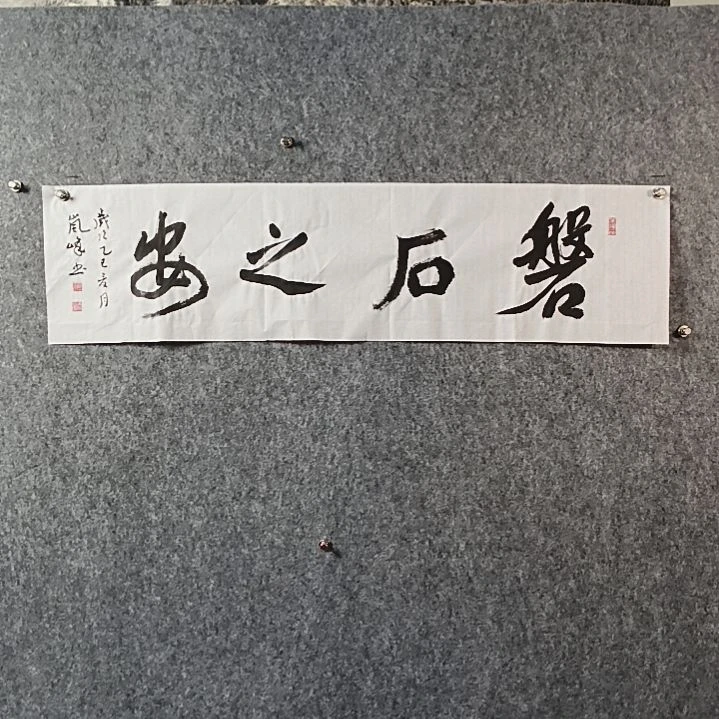 磐石之安
歲次乙巳之月
嵐峰书